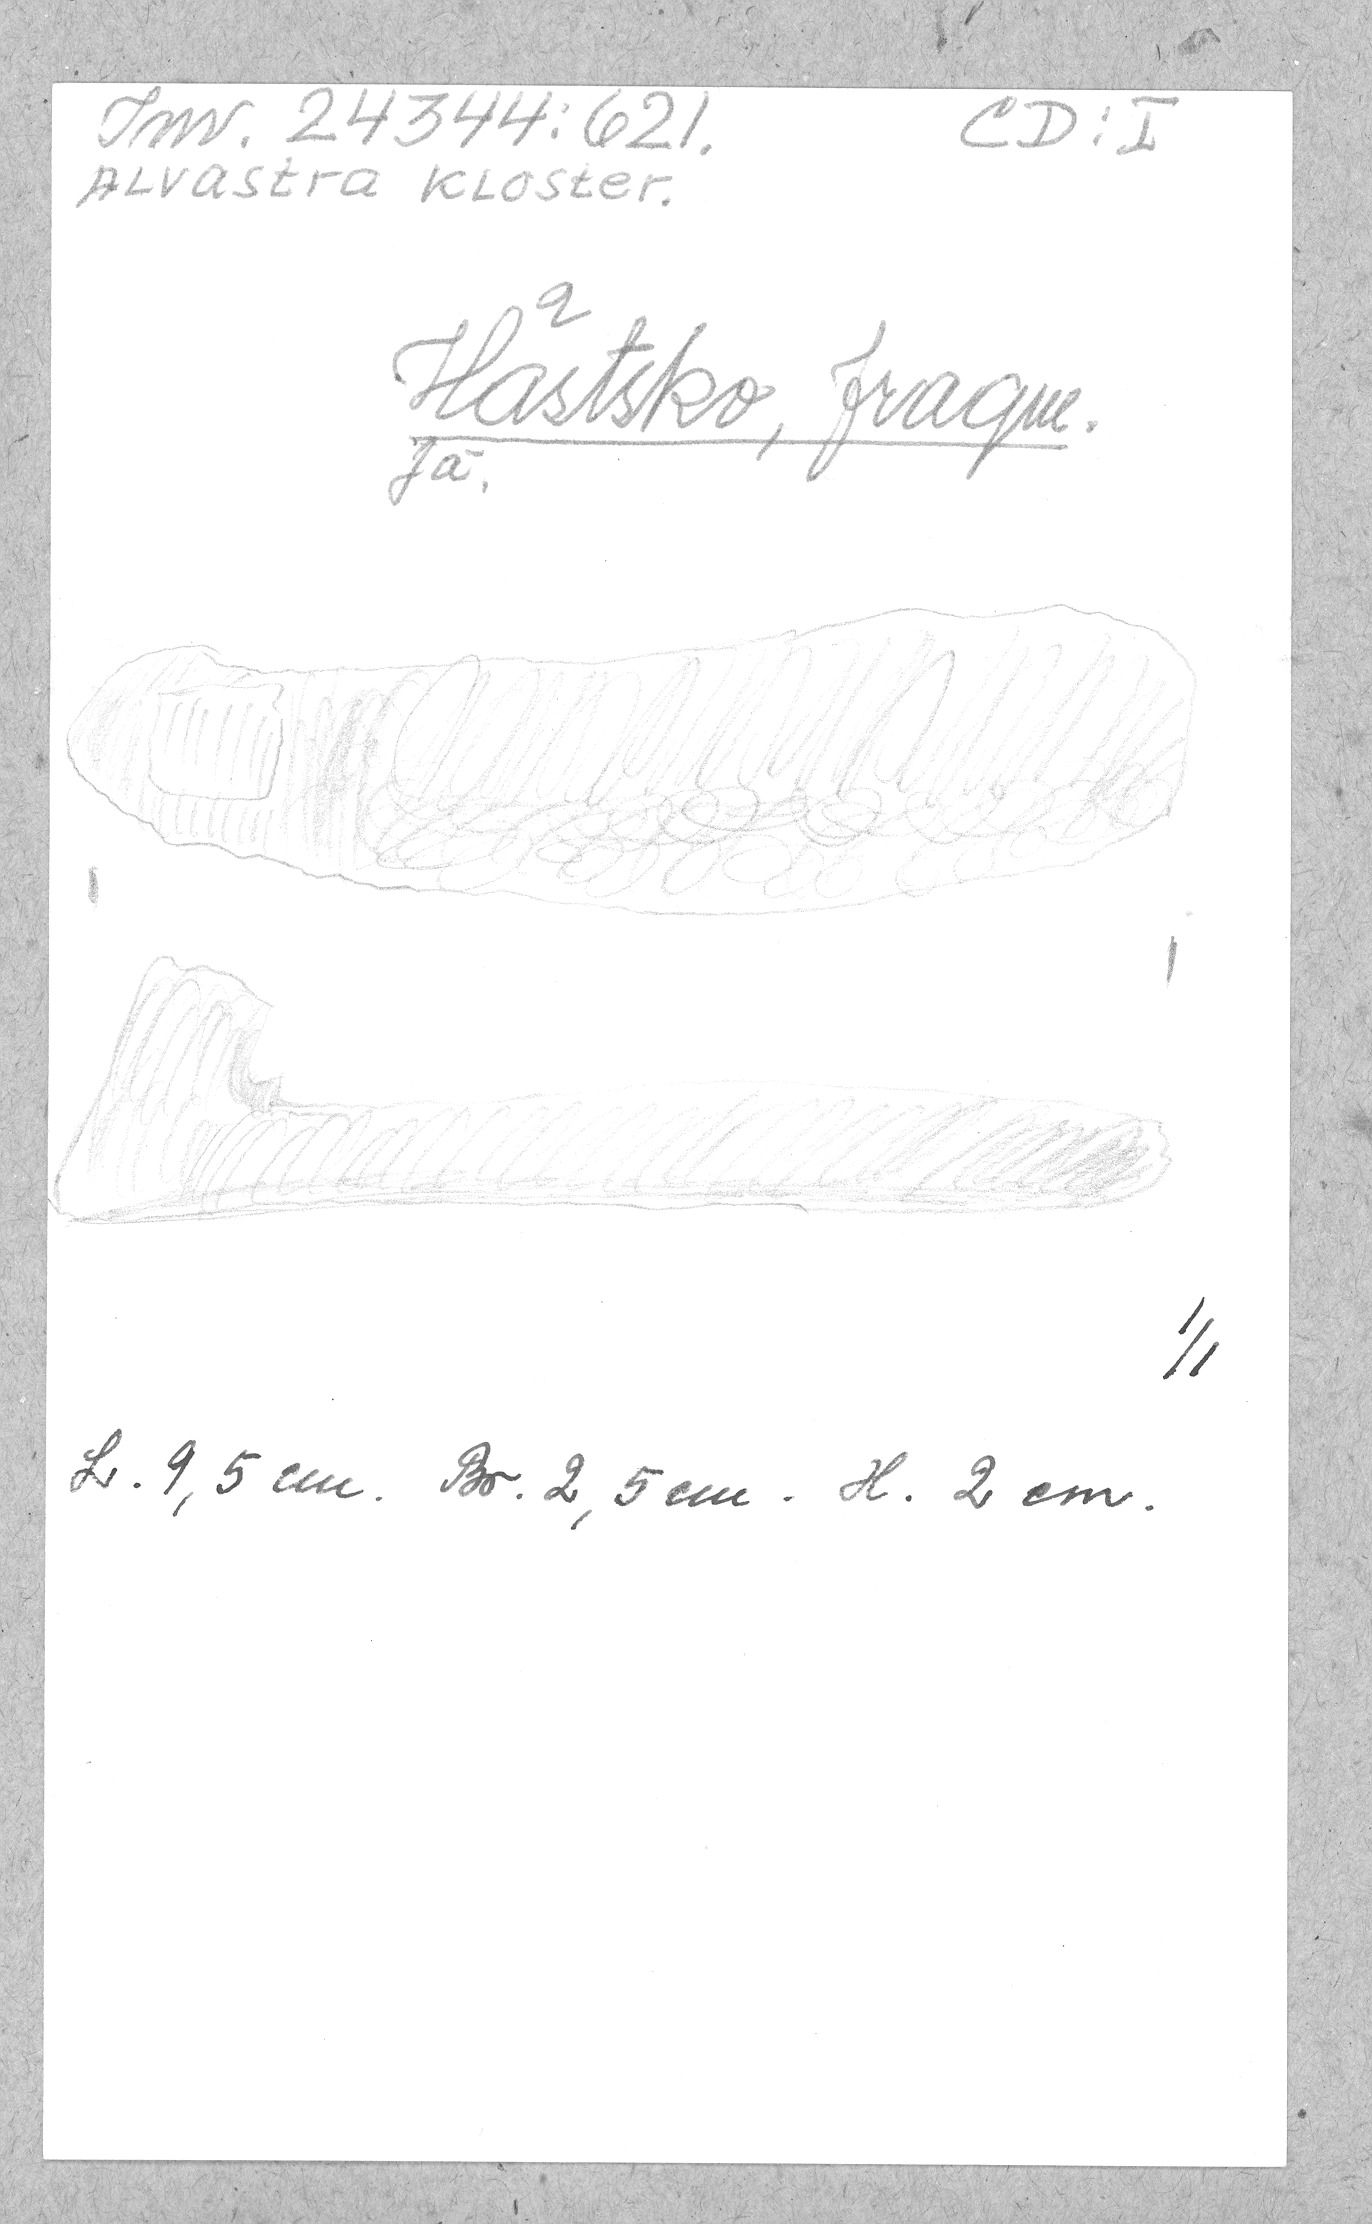 Inv. 24344:621. CD:I
ALVastra KLoster.
Hästsko, fragm.
Jä.
1/1
L. 9,5 cm. Br. 2,5 cm. H. 2 cm.